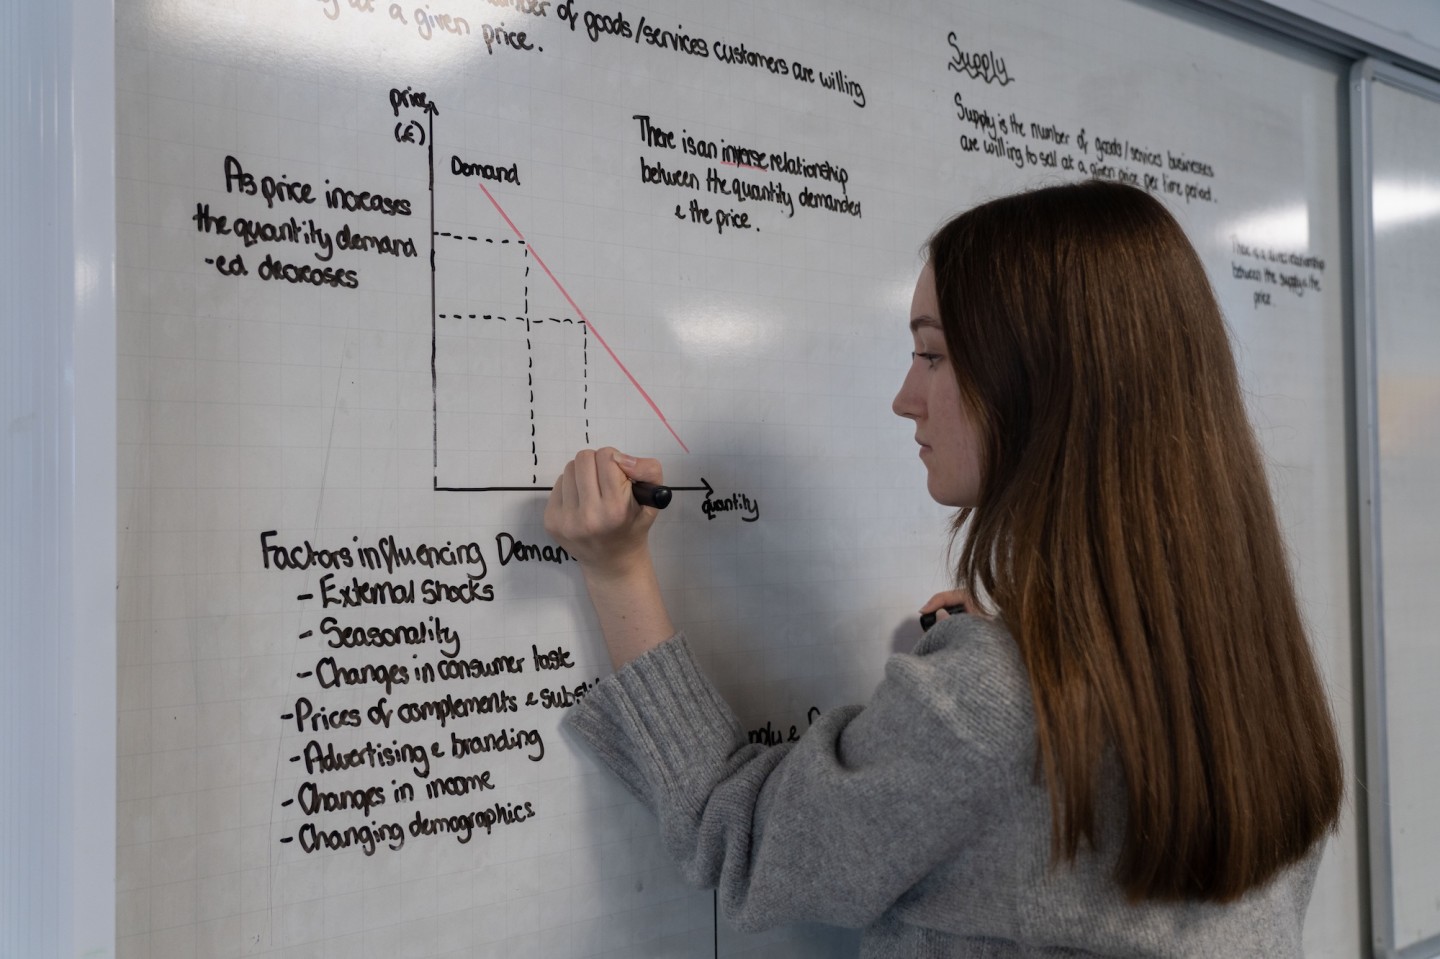 of goods/services customers are willing
at a given price.
price
(£)
Demand
As price increases
the quantity demand
-ed decreases
There is an inverse relationship
between the quantity demanded
& the price.
quantity
Factors influencing Deman
- External Shocks
- Seasonality
- Changes in consumer taste
- Prices of complements & substi
- Advertising & branding
- Changes in income
- Changing demographics
Supply
Supply is the number of goods/services businesses
are willing to sell at a given price per time period.
There is a relationship
between the supply & the
price.